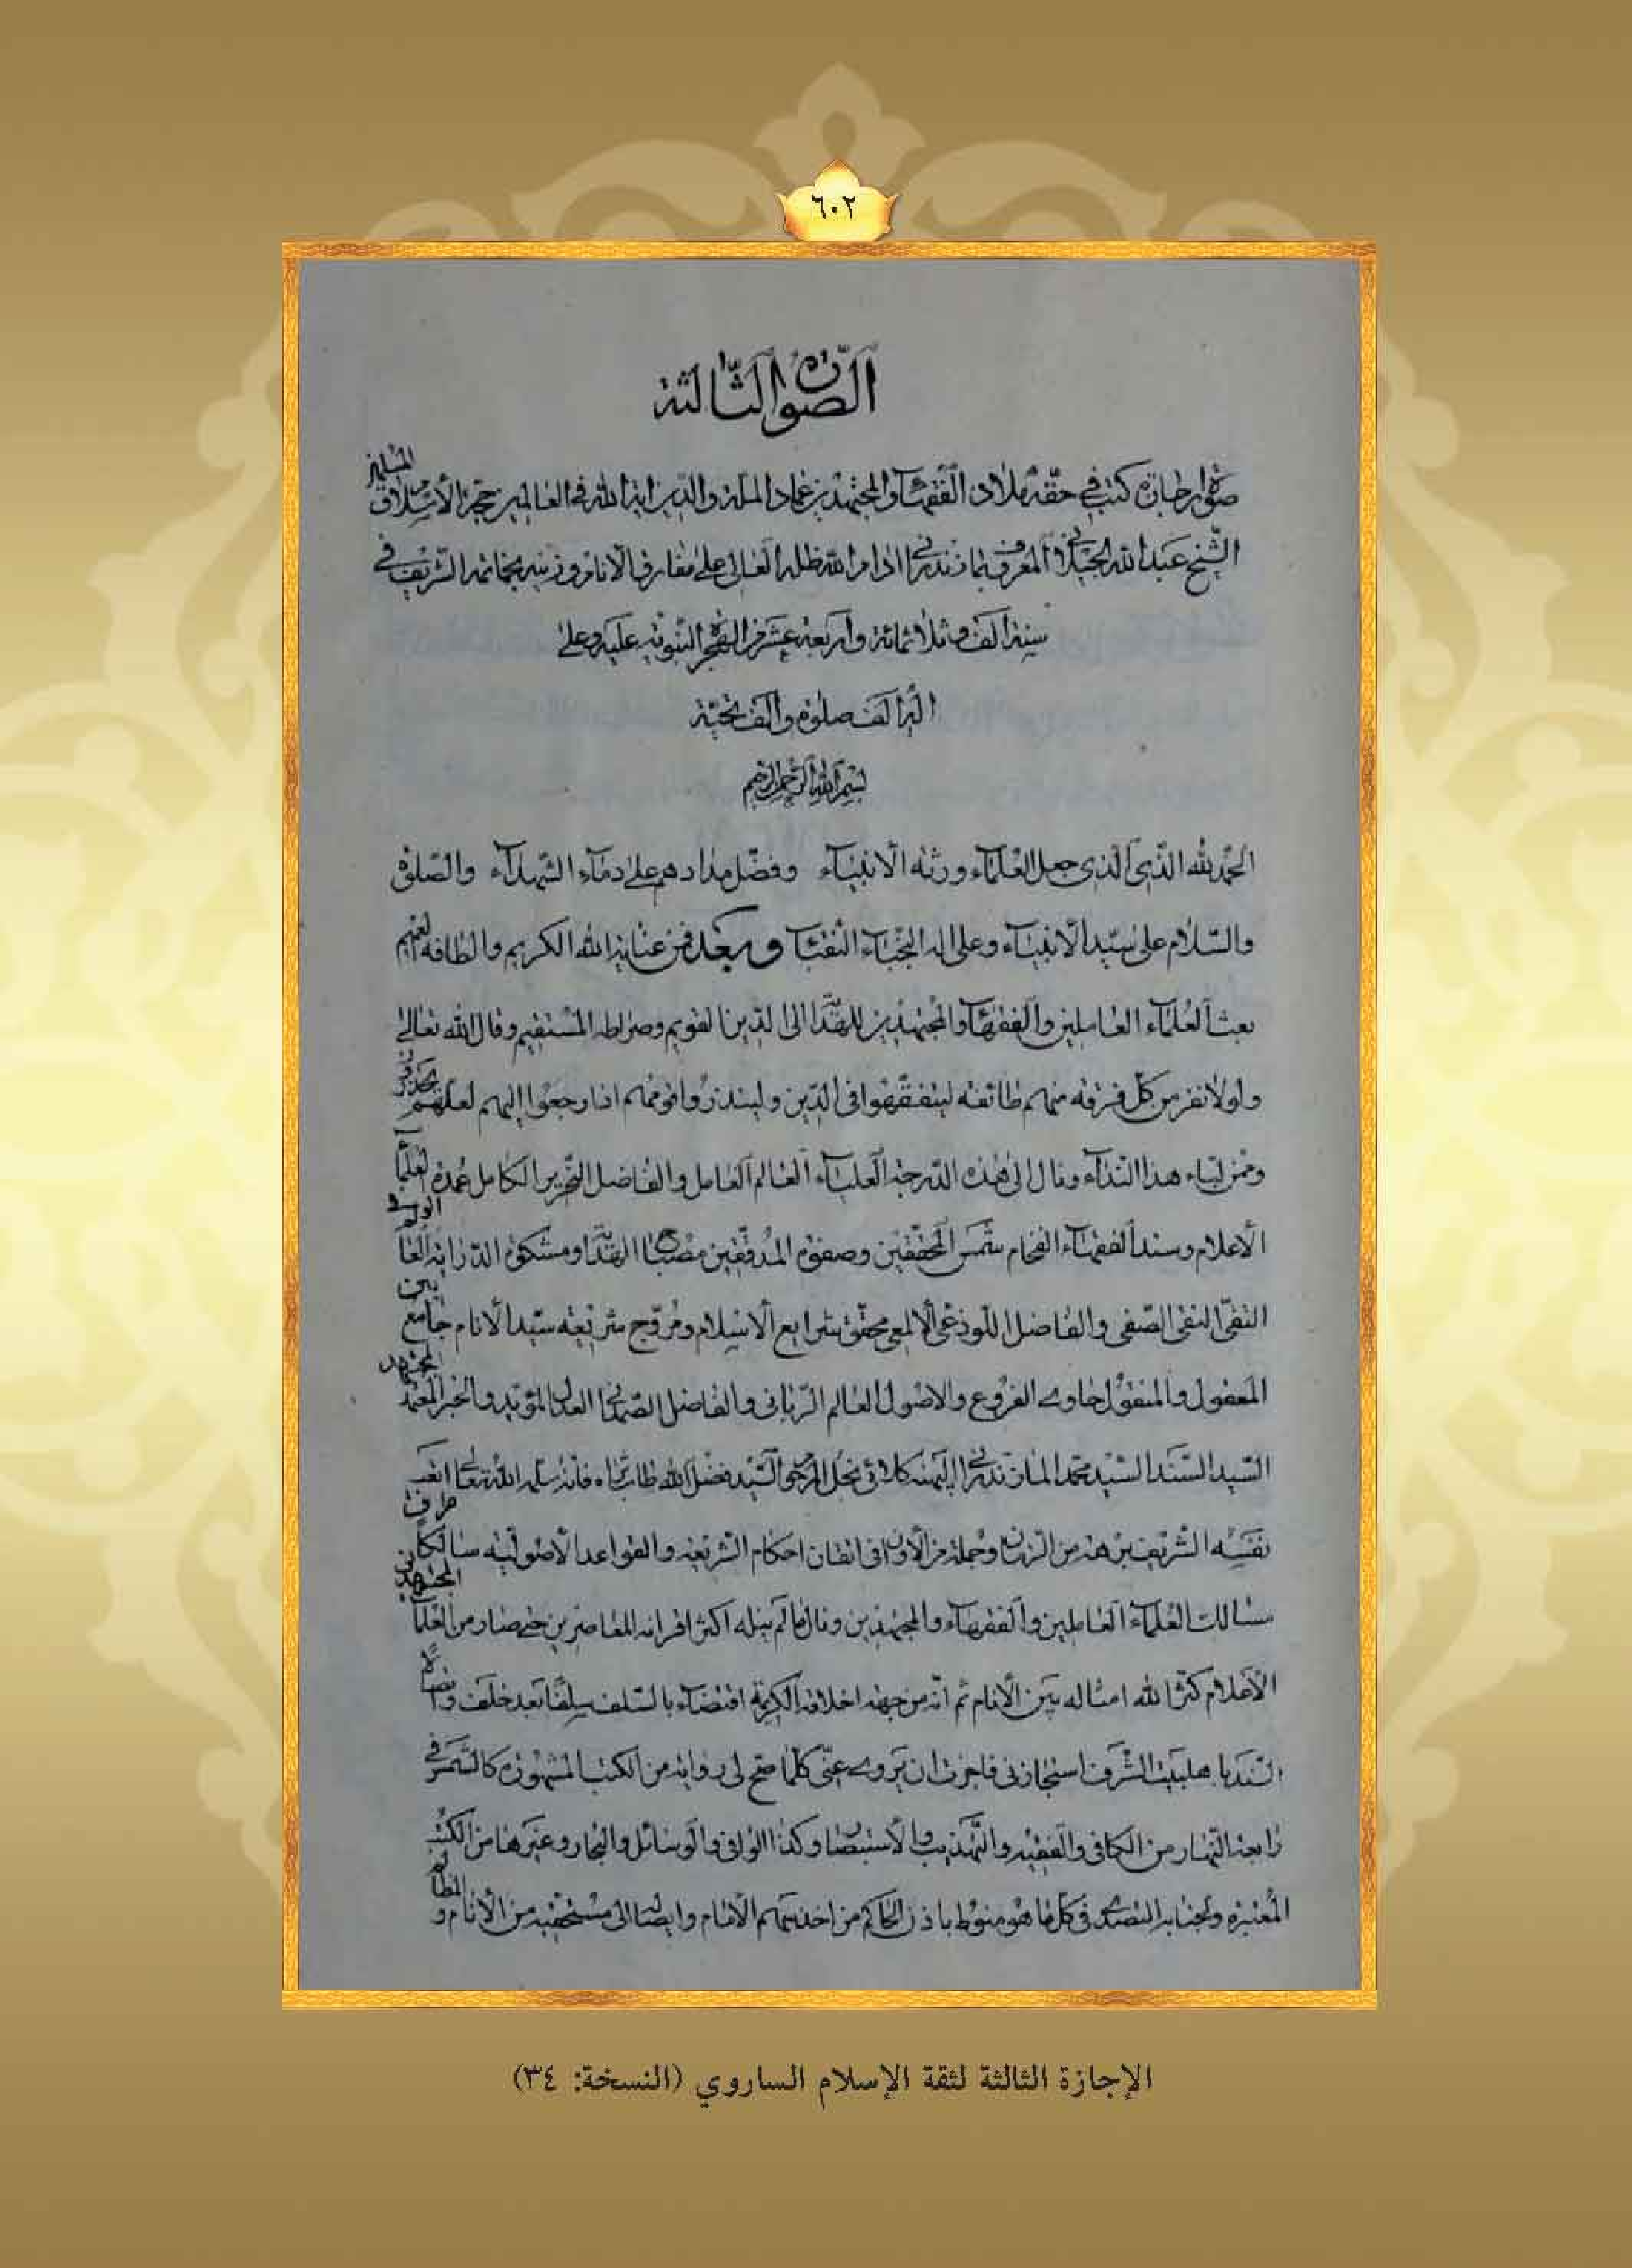 ٦٠٢
الصورة الثالثة
صورة اجازة كتب في حقه ملاذ الفقهاء والمجتهدين عماد الملة والدين اية الله في العالمين حجة الاسلام والمسلمين
الشيخ عبد الله المعروف بمازندراني ادام الله ظله العالي على مفارق الانام وزينه بخاتمه الشريف في
سنة الف وثلاثمائة واربعة عشر من الهجرة النبوية عليه وعلى
اله الف صلوة والف تحية
بسم الله الرحمن الرحيم
الحمد لله الذي جعل العلماء ورثة الانبياء وفضل مدادهم على دماء الشهداء والصلوة
والسلام على سيد الانبياء وعلى اله النجباء النقباء وبعد فمن عناية الله الكريم والطافه
بعث العلماء العاملين والفقهاء والمجتهدين للهداية الى الدين القويم وصراطه المستقيم وقال الله تعالى
ولولا نفر من كل فرقة منهم طائفة ليتفقهوا في الدين ولينذروا قومهم اذا رجعوا اليهم لعلهم يحذرون
وممن لباء هذا النداء ونال الى هذه الدرجة العلياء العالم العامل والفاضل النحرير الكامل عمدة العلماء
الاعلام وسند الفقهاء الفخام شمس المحققين وصفوة المدققين مصباح الهداية ومشكوة الدراية العالم
التقي النقي الصفي والفاضل اللوذعي الالمعي محقق شرايع الاسلام ومروج شريعة سيد الانام جامع بين
المعقول والمنقول حاوي الفروع والاصول العالم الرباني والفاضل الصمداني العادل المؤيد والحبر المعتمد المجتهد
السيد السند السيد محمد المازندراني نجل المرحوم السيد فضل الله طاب ثراه فانه سلمه الله تعالى اتعب
نفسه الشريف برهة من الزمان وجملة من الاوان في اتقان احكام الشريعة والقواعد الاصولية سالكا
مسالك العلماء العاملين والفقهاء والمجتهدين ونال ما لم ينله اكثر اقرانه المعاصرين حتى صار من العلماء المجتهدين
الاعلام كثر الله امثاله بين الانام ثم انه من جهة اخلاقه الكريمة اقتضاء بالسلف سلفا بعد خلف
استجازني فاجزت ان يروي عني كلما صح لي روايته من الكتب المشهورة كالشمس في
رابعة النهار من الكافي والفقيه والتهذيب والاستبصار وكذا الوافي والوسائل والبحار وغيرها من الكتب
المعتبرة ولجنابه التصدي في كل ما هو منوط باذن الحاكم من اخذ سهم الامام وايصاله الى مستحقيه من الانام و
الإجازة الثالثة لثقة الإسلام الساروي (النسخة: ٣٤)